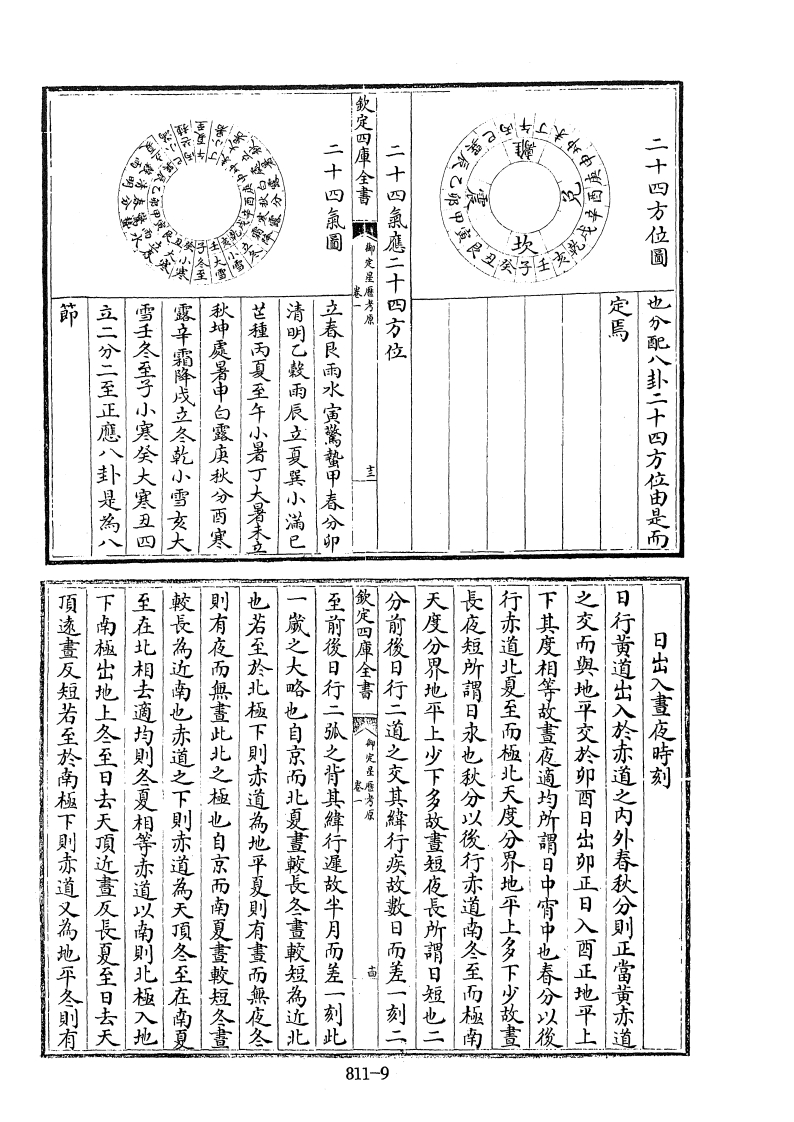 二十四方位圖
離
兌
坎
震
午丁未坤申庚酉辛戌乾亥壬子癸丑艮寅甲卯乙辰巽巳丙
也分配八卦二十四方位由是而
定焉
二十四氣應二十四方位
欽定四庫全書
御定星歷考原
卷一
十三
二十四氣圖
午丁未坤申庚酉辛戌乾亥壬子癸丑艮寅甲卯乙辰巽巳丙
立春艮雨水寅驚蟄甲春分卯
清明乙穀雨辰立夏巽小滿巳
芒種丙夏至午小暑丁大暑未立
秋坤處暑申白露庚秋分酉寒
露辛霜降戌立冬乾小雪亥大
雪壬冬至子小寒癸大寒丑四
立二分二至正應八卦是為八
節
日出入晝夜時刻
日行黃道出入於赤道之內外春秋分則正當黃赤道
之交而與地平交於卯酉日出卯正日入酉正地平上
下其度相等故晝夜適均所謂日中宵中也春分以後
行赤道北夏至而極北天度分界地平上多下少故晝
長夜短所謂日永也秋分以後行赤道南冬至而極南
天度分界地平上少下多故晝短夜長所謂日短也二
分前後日行二道之交其緯行疾故數日而差一刻二
欽定四庫全書
御定星歷考原
卷一
十四
至前後日行二弧之背其緯行遲故半月而差一刻此
一歲之大略也自京而北夏晝較長冬晝較短為近北
也若至於北極下則赤道為地平夏則有晝而無夜冬
則有夜而無晝此北之極也自京而南夏晝較短冬晝
較長為近南也赤道之下則赤道為天頂冬至在南夏
至在北相去適均則冬夏相等赤道以南則北極入地
下南極出地上冬至日去天頂近晝反長夏至日去天
頂遠晝反短若至於南極下則赤道又為地平冬則有
811-9